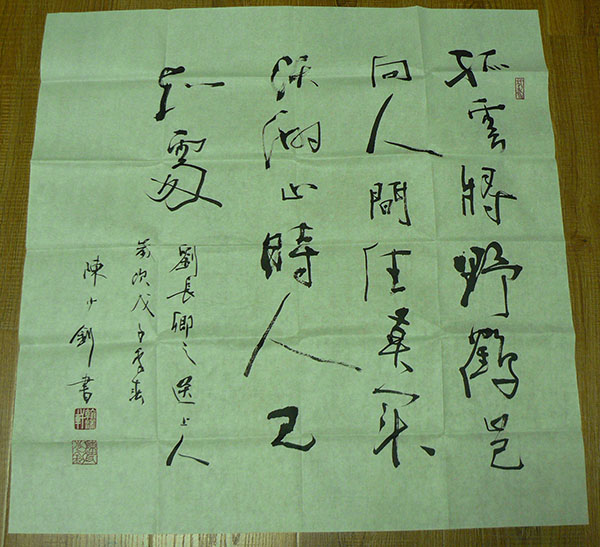 孤雲將野鶴豈
向人間住莫買
沃洲山時人已
知處
劉長卿之送上人
歲次戊子季春
陳少釗書